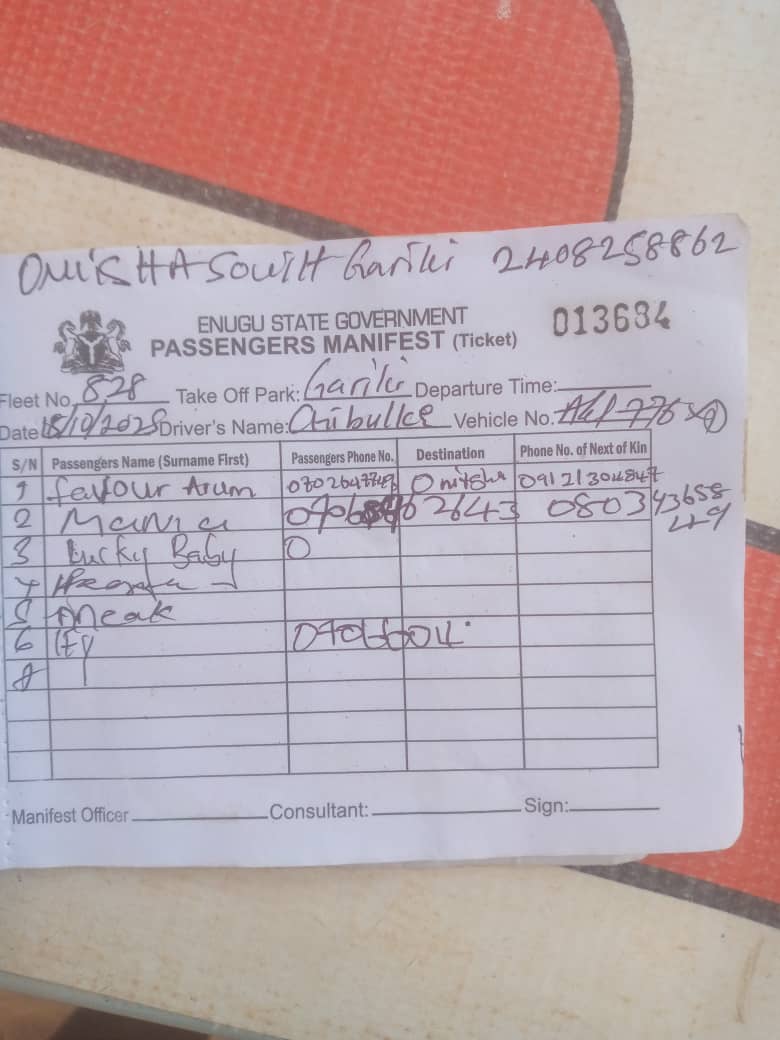 ONITSHA SOUTH Gariki 2408258862
ENUGU STATE GOVERNMENT
PASSENGERS MANIFEST (Ticket)
013684
Fleet No. 828 Take Off Park: Gariki Departure Time:
Date 15/10/2025 Driver's Name: Chibuike Vehicle No.
S/N Passengers Name (Surname First) Passengers Phone No. Destination Phone No. of Next of Kin
1 favour Arum Onitsha 09121304847
2 080343658
49
3 Lucky Baby 0
4
5 Aneak
6 IFY
Manifest Officer Consultant: Sign: